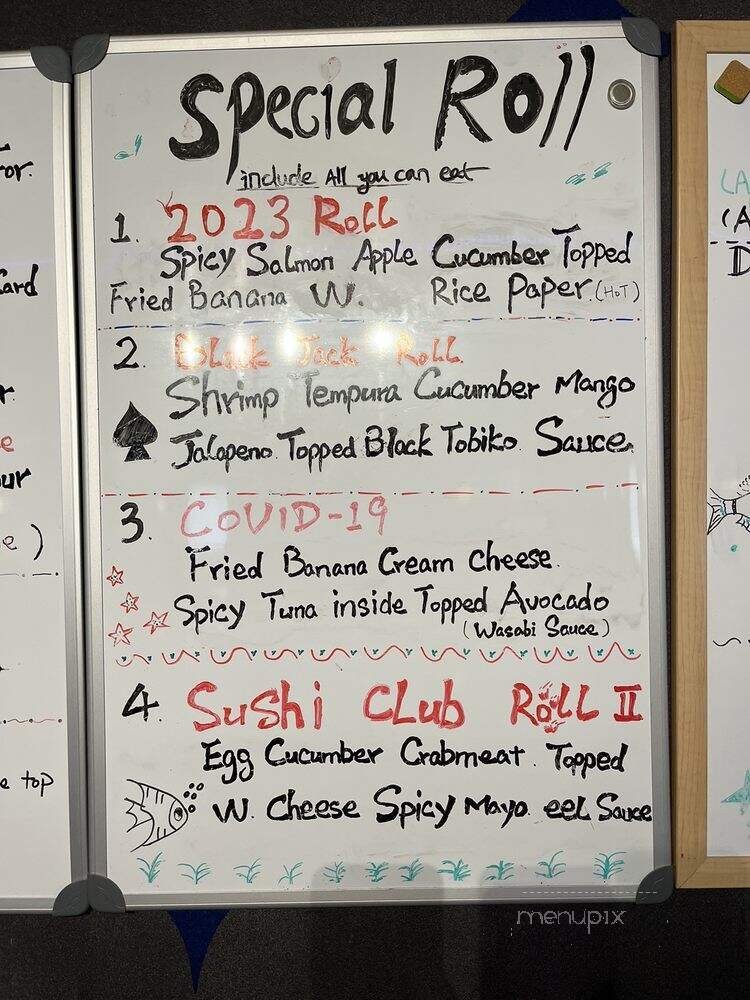 Special Roll
include All you can eat
1. 2023 Roll
Spicy Salmon Apple Cucumber Topped
Fried Banana W. Rice Paper (HOT)
2. Black Jack Roll
Shrimp Tempura Cucumber Mango
Jalapeno. Topped Black Tobiko. Sauce.
3. COVID-19
Fried Banana Cream cheese.
Spicy Tuna inside Topped Avocado
(Wasabi Sauce)
4. Sushi Club Roll II
Egg Cucumber Crabmeat. Topped
W. Cheese Spicy Mayo. eel Sauce
menupix
or.
Card
r.
e
our
e )
e top
(A
(A
D